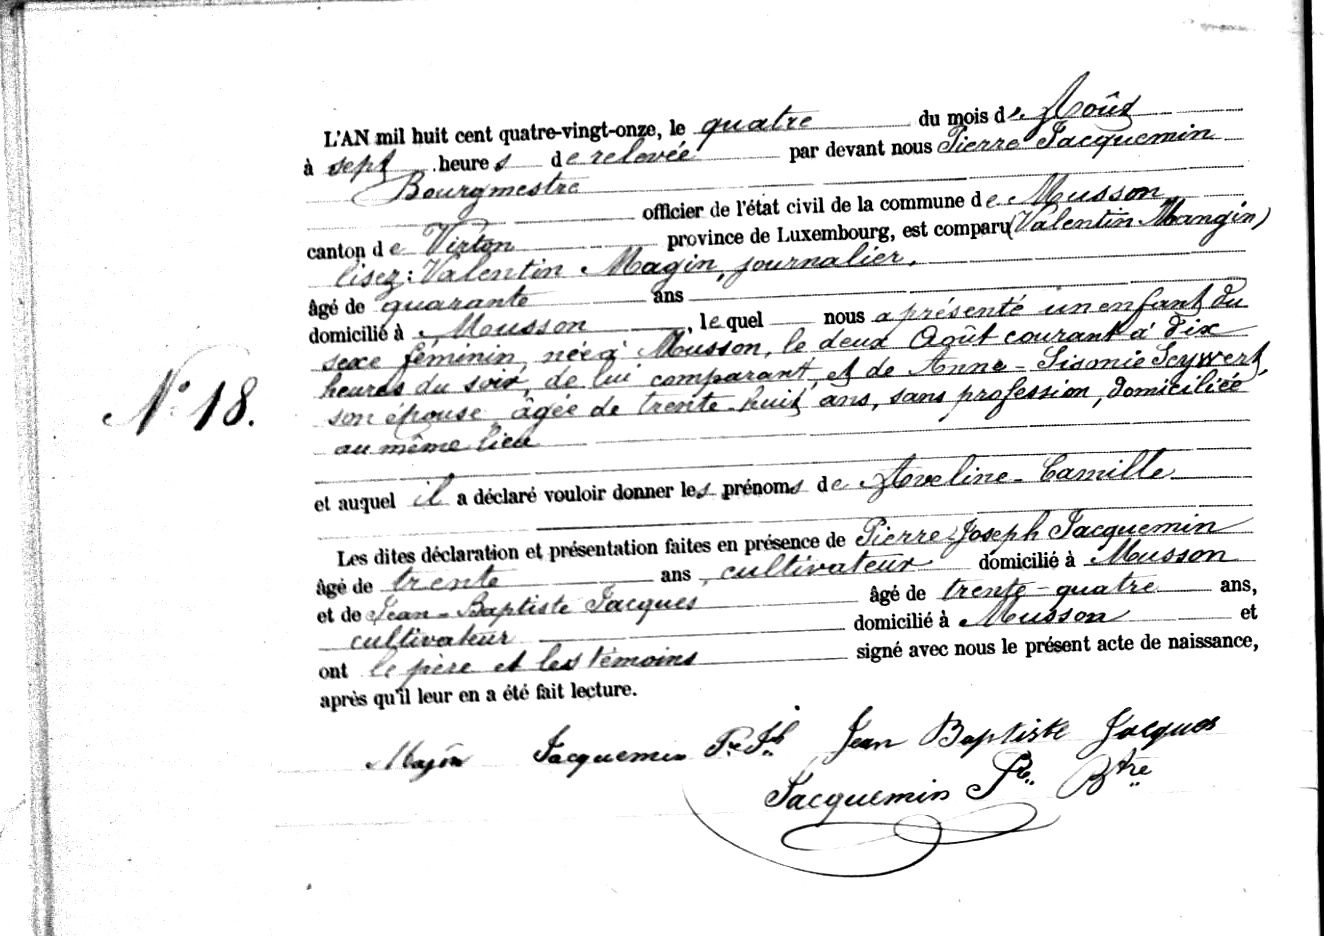 L'AN mil huit cent quatre-vingt-onze, le quatre du mois de Août
à sept heures de relevée par devant nous Pierre Jacquemin
Bourgmestre
officier de l'état civil de la commune de Musson
canton de Virton province de Luxembourg, est comparu (Valentin Mangin)
lisez: Valentin Magin, journalier,
âgé de quarante ans
domicilié à Musson, lequel nous a présenté un enfant du
sexe féminin, née à Musson, le deux Août courant à dix
heures du soir, de lui comparant, et de Anne-Sidonie Seywert,
son épouse, âgée de trente-huit ans, sans profession, domiciliée
N° 18.
au même lieu
et auquel il a déclaré vouloir donner les prénoms de Aveline-Camille
Les dites déclaration et présentation faites en présence de Pierre-Joseph Jacquemin
âgé de trente ans, cultivateur domicilié à Musson
et de Jean-Baptiste Jacques âgé de trente-quatre ans,
cultivateur domicilié à Musson et
ont le père et les témoins signé avec nous le présent acte de naissance,
après qu'il leur en a été fait lecture.
Magin Jacquemin Pre Jh Jean Baptiste Jacques
Jacquemin Pre Btre